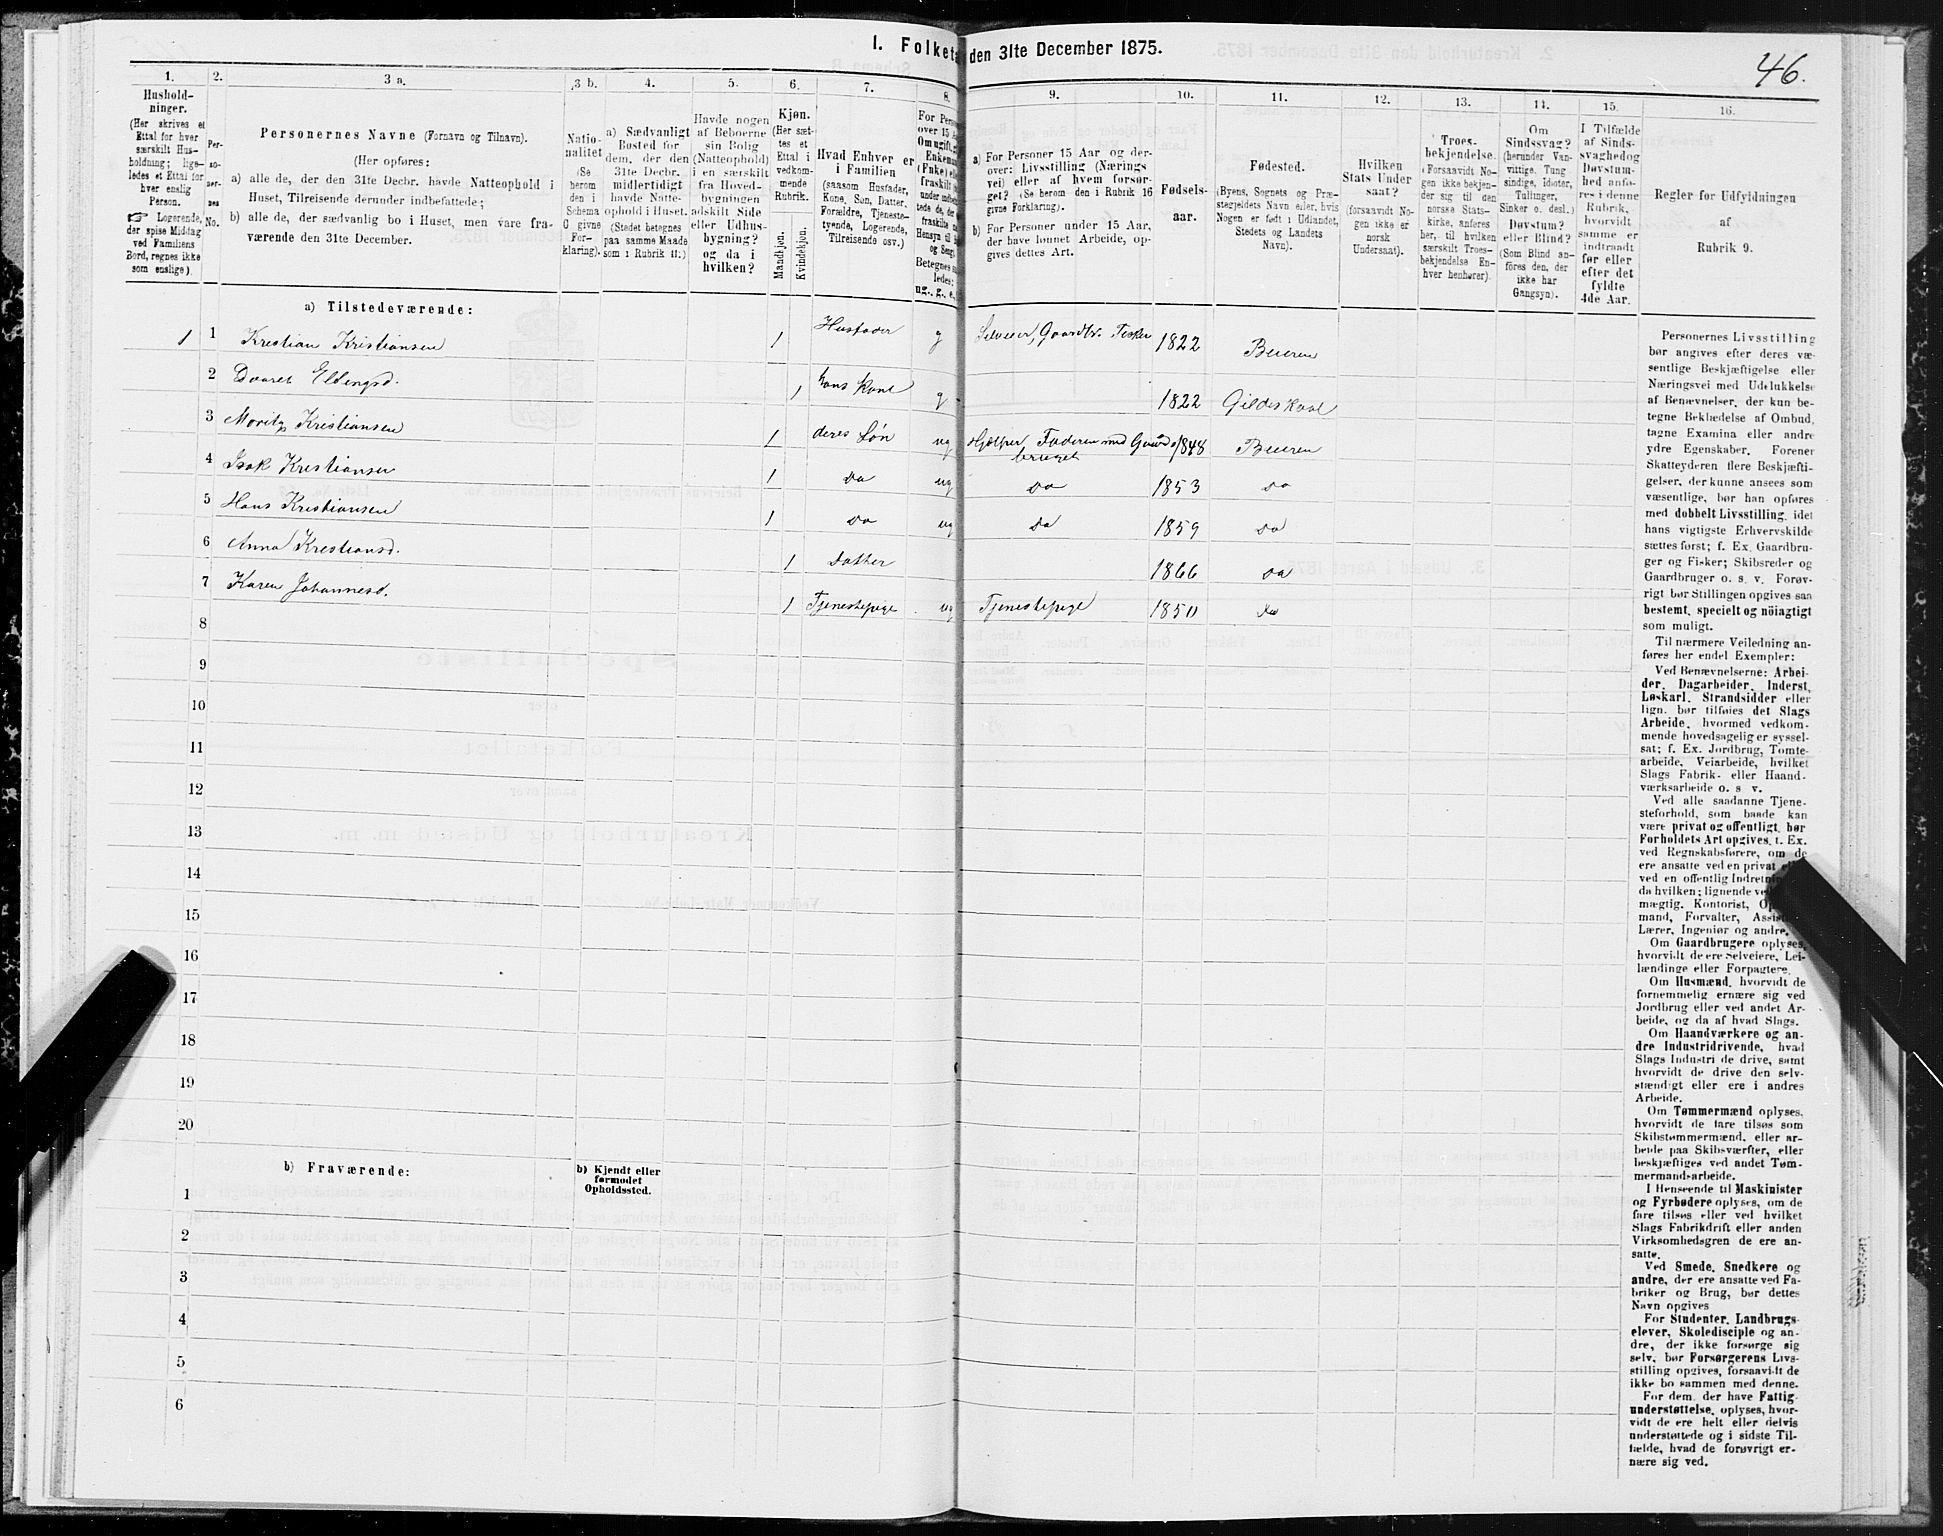 1. Folketæ den 31te December 1875.
46.
1. 2. 3 a. 3 b. 4. 5. 6. 7. 8. 9. 10. 11. 12. 13. 14. 15. 16.
Hushold-
ninger.
(Her skrives et
Ettal for hver
særskilt Hus-
holdning; lige-
ledes et Ettal for
hver enslig
Person.
☞ Logerende,
der spise Middag
ved Familiens
Bord, regnes ikke
som enslige).
Per-
so-
ner-
nes
No.
Personernes Navne (Fornavn og Tilnavn).
(Her opføres:
a) alle de, der den 31te Decbr. havde Natteophold i
Huset, Tilreisende derunder indbefattede;
b) alle de, der sædvanlig bo i Huset, men vare fra-
værende den 31te December.
Natio-
nalitet
(Se
herom
den i
Schema
G givne
For-
klaring).
a) Sædvanligt
Bosted for
dem, der den
31te Decbr.
midlertidigt
havde Natte-
ophold i Huset.
(Stedet betegnes
paa samme Maade
som i Rubrik 11.)
Havde nogen
af Beboerne
sin Bolig
(Natteophold)
i en særskilt
fra Hoved-
bygningen
adskilt Side
eller Udhus-
bygning?
og da i
hvilken?
Kjøn.
(Her sæt-
tes et
Ettal i
vedkom-
mende
Rubrik.
Mandkjøn.
Kvindekjøn.
Hvad Enhver er
i Familien
(saasom Husfader,
Kone, Søn, Datter,
Forældre, Tjeneste-
tyende, Logerende,
Tilreisende osv.)
For Perso
over 15 A
Om ugift, gi
Enkema
(Enke) el
fraskilt
Betegnes s
ledes:
ug., g., e.,
a) For Personer 15 Aar og der-
over: Livsstilling (Nærings
vei) eller af hvem forsør-
get? (Se herom den i Rubrik 16
givne Forklaring).
b) For Personer under 15 Aar,
der have lønnet Arbeide, op-
gives dettes Art.
Fødsels-
aar.
Fødested.
(Byens, Sognets og Præ-
stegjeldets Navn eller, hvis
Nogen er født i Udlandet,
Stedets og Landets
Navn).
Hvilken
Stats Under
saat?
(forsaavidt No-
gen ikke er
norsk
Undersaat).
Troes-
bekjendelse.
(Forsaavidt No-
gen ikke bekjen-
der sig til den
norske Stats-
kirke, anføres
her, til hvilken
særskilt Troes-
bekjendelse En-
hver henhører).
Om
Sindssvag?
(herunder Van-
vittige, Tung
sindige, Idioter,
Tullinger,
Sinker o. desl.)
Døvstum?
eller Blind?
(Som Blind an-
føres den, der
ikke har
Gangsyn).
I Tilfælde
af Sinds-
svaghed og
Døvstum-
hed anfø-
res i denne
Rubrik,
hvorvidt
samme er
indtraadt
før eller
efter det
fyldte
4de Aar.
Regler for Udfyldningen
af
Rubrik 9.
a) Tilstedeværende:
1 1 Kristian Kristiansen 1 Husfader g Selveier, Gaardbr. Fisker 1822 Beieren
2 Daaret Ellingsd. 1 hans Kone g 1822 Gildeskaal
3 Moritz Kristiansen 1 deres Søn ug Hjelper Faderen med Gaards
bruget 1848 Beieren
4 Isak Kristiansen 1 Do ug Do 1853 Do
5 Hans Kristiansen 1 Do ug Do 1859 Do
6 Anna Kristiansd. 1 Datter 1866 Do
7 Karen Johannesd. 1 Tjenestepige ug Tjenestepige 1850 Do
8
9
10
11
12
13
14
15
16
17
18
19
20
b) Fraværende:
b) Kjendt eller
formodet
Opholdssted.
1
2
3
4
5
6
Personernes Livsstilling
bør angives efter deres væ-
sentlige Beskjæftigelse eller
Næringsvei med Udelukkelse
af Benævnelser, der kun be-
tegne Beklædelse af Ombud,
tagne Examina eller andre
ydre Egenskaber. Forener
Skatteyderen flere Beskjæfti-
gelser, der kunne ansees som
væsentlige, bør han opføres
med dobbelt Livsstilling, idet
hans vigtigste Erhvervskilde
sættes først; f. Ex. Gaardbru-
ger og Fisker; Skibsreder og
Gaardbruger o. s. v. Forøv-
rigt bør Stillingen opgives saa
bestemt, specielt og nöiagtigt
som muligt.
Til nærmere Veiledning an-
føres her endel Exempler:
Ved Benævnelserne: Arbei-
der, Dagarbeider, Inderst,
Løskarl, Strandsidder eller
lign. bør tilføies det Slags
Arbeide, hvormed vedkom-
mende hovedsagelig er syssel-
sat; f. Ex. Jordbrug, Tomte-
arbeide, Veiarbeide, hvilket
Slags Fabrik- eller Haand-
værksarbeide o. s v.
Ved alle saadanne Tjene-
steforhold, som baade kan
være privat og offentligt, bør
Forholdets Art opgives, t. Ex.
ved Regnskabsførere, om de
ere ansatte ved en privat
ved en offentlig Indretnin
da hvilken; lignende ve
mægtig, Kontorist, Op
mand, Forvalter, Assis
Lærer, Ingeniør og andre.
Om Gaardbrugere oplyses,
hvorvidt de ere Selveiere, Lei-
lændinge eller Forpagtere.
Om Husmænd, hvorvidt de
fornemmelig ernære sig ved
Jordbrug eller ved andet Ar-
beide, og da af hvad Slags.
Om Haandværkere og an-
dre Industridrivende, hvad
Slags Industri de drive, samt
hvorvidt de drive den selv-
stændigt eller ere i andres
Arbeide.
Om Tømmermænd oplyses,
hvorvidt de fare tilsøs som
Skibstømmermænd, eller ar-
beide paa Skibsværfter, eller
beskjæftiges ved andet Tøm-
mermandsarbeide.
I Henseende til Maskinister
og Fyrbødere oplyses, om de
fare tilsøs eller ved hvilket
Slags Fabrikdrift eller anden
Virksomhedsgren de ere an-
satte.
Ved Smede, Snedkere og
andre, der ere ansatte ved Fa-
briker og Brug, bør dettes
Navn opgives
For Studenter, Landbrugs-
elever, Skoledisciple og an-
dre, der ikke forsørge sig
selv, bør Forsørgerens Livs-
stilling opgives, forsaavidt de
ikke bo sammen med denne.
For dem, der have Fattig-
understøttelse, oplyses, hvor-
vidt de ere helt eller delvis
understøttede og i sidste Til-
fælde, hvad de forøvrigt er-
nære sig ved.